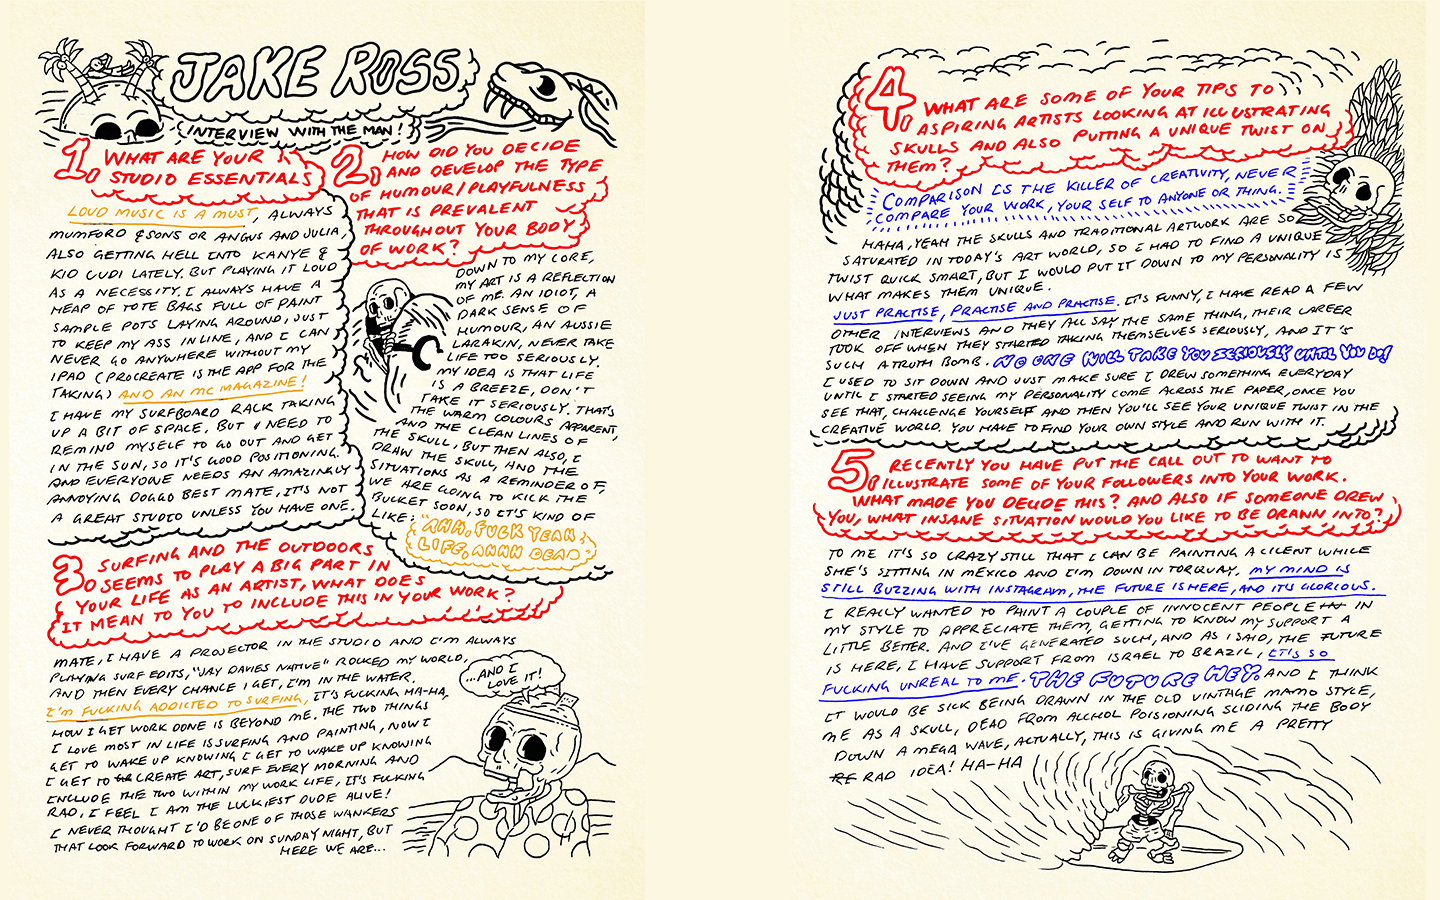 JAKE ROSS
INTERVIEW WITH THE MAN!
1. WHAT ARE YOUR
STUDIO ESSENTIALS
LOUD MUSIC IS A MUST, ALWAYS
MUMFORD & SONS OR ANGUS AND JULIA,
ALSO GETTING HELL INTO KANYE &
KID CUDI LATELY. BUT PLAYING IT LOUD
AS A NECESSITY. I ALWAYS HAVE A
HEAP OF TOTE BAGS FULL OF PAINT
SAMPLE POTS LAYING AROUND, JUST
TO KEEP MY ASS INLINE, AND I CAN
NEVER GO ANYWHERE WITHOUT MY
IPAD (PROCREATE IS THE APP FOR THE
TAKING) AND AN MC MAGAZINE!
I HAVE MY SURFBOARD RACK TAKING
UP A BIT OF SPACE, BUT I NEED TO
REMIND MYSELF TO GO OUT AND GET
IN THE SUN, SO IT'S GOOD POSITIONING.
AND EVERYONE NEEDS AN AMAZINGLY
ANNOYING DOGGO BEST MATE, IT'S NOT
A GREAT STUDIO UNLESS YOU HAVE ONE.
2. HOW DID YOU DECIDE
AND DEVELOP THE TYPE
OF HUMOUR/PLAYFULNESS
THAT IS PREVALENT
THROUGHOUT YOUR BODY
OF WORK?
DOWN TO MY CORE,
MY ART IS A REFLECTION
OF ME. AN IDIOT, A
DARK SENSE OF
HUMOUR, AN AUSSIE
LARAKIN, NEVER TAKE
LIFE TOO SERIOUSLY.
MY IDEA IS THAT LIFE
IS A BREEZE, DON'T
TAKE IT SERIOUSLY. THAT'S
THE WARM COLOURS APPARENT,
AND THE CLEAN LINES OF
THE SKULL, BUT THEN ALSO, I
DRAW THE SKULL, AND THE
SITUATIONS AS A REMINDER OF,
WE ARE GOING TO KICK THE
BUCKET SOON, SO IT'S KIND OF
LIKE: "AHH, FUCK YEAH
LIFE, AHHH DEAD
3. SURFING AND THE OUTDOORS
SEEMS TO PLAY A BIG PART IN
YOUR LIFE AS AN ARTIST, WHAT DOES
IT MEAN TO YOU TO INCLUDE THIS IN YOUR WORK?
MATE, I HAVE A PROJECTOR IN THE STUDIO AND I'M ALWAYS
PLAYING SURF EDITS, "JAY DAVIES NATIVE" ROCKED MY WORLD,
AND THEN EVERY CHANCE I GET, I'M IN THE WATER.
I'M FUCKING ADDICTED TO SURFING, IT'S FUCKING HA-HA,
HOW I GET WORK DONE IS BEYOND ME. THE TWO THINGS
I LOVE MOST IN LIFE IS SURFING AND PAINTING, NOW I
GET TO WAKE UP KNOWING I GET TO WAKE UP KNOWING
I GET TO CREATE ART, SURF EVERY MORNING AND
INCLUDE THE TWO WITHIN MY WORK LIFE, IT'S FUCKING
RAD, I FEEL I AM THE LUCKIEST DUDE ALIVE!
I NEVER THOUGHT I'D BE ONE OF THOSE WANKERS
THAT LOOK FORWARD TO WORK ON SUNDAY NIGHT, BUT
HERE WE ARE...
...AND I
LOVE IT!
4. WHAT ARE SOME OF YOUR TIPS TO
ASPIRING ARTISTS LOOKING AT ILLUSTRATING
SKULLS AND ALSO PUTTING A UNIQUE TWIST ON
THEM?
COMPARISON IS THE KILLER OF CREATIVITY, NEVER
COMPARE YOUR WORK, YOUR SELF TO ANYONE OR THING.
HAHA, YEAH THE SKULLS AND TRADITIONAL ARTWORK ARE SO
SATURATED IN TODAY'S ART WORLD, SO I HAD TO FIND A UNIQUE
TWIST QUICK SMART, BUT I WOULD PUT IT DOWN TO MY PERSONALITY IS
WHAT MAKES THEM UNIQUE.
JUST PRACTISE, PRACTISE AND PRACTISE. IT'S FUNNY, I HAVE READ A FEW
OTHER INTERVIEWS AND THEY ALL SAY THE SAME THING, THEIR CAREER
TOOK OFF WHEN THEY STARTED TAKING THEMSELVES SERIOUSLY, AND IT'S
SUCH A TRUTH BOMB. NO ONE WILL TAKE YOU SERIOUSLY UNTIL YOU DO!
I USED TO SIT DOWN AND JUST MAKE SURE I DREW SOMETHING EVERYDAY
UNTIL I STARTED SEEING MY PERSONALITY COME ACROSS THE PAPER, ONCE YOU
SEE THAT, CHALLENGE YOURSELF AND THEN YOU'LL SEE YOUR UNIQUE TWIST IN THE
CREATIVE WORLD. YOU HAVE TO FIND YOUR OWN STYLE AND RUN WITH IT.
5. RECENTLY YOU HAVE PUT THE CALL OUT TO WANT TO
ILLUSTRATE SOME OF YOUR FOLLOWERS INTO YOUR WORK.
WHAT MADE YOU DECIDE THIS? AND ALSO IF SOMEONE DREW
YOU, WHAT INSANE SITUATION WOULD YOU LIKE TO BE DRAWN INTO?
TO ME IT'S SO CRAZY STILL THAT I CAN BE PAINTING A CILENT WHILE
SHE'S SITTING IN MEXICO AND I'M DOWN IN TORQUAY, MY MIND IS
STILL BUZZING WITH INSTAGRAM, THE FUTURE IS HERE, AND IT'S GLORIOUS.
I REALLY WANTED TO PAINT A COUPLE OF INNOCENT PEOPLE IN
MY STYLE TO APPRECIATE THEM, GETTING TO KNOW MY SUPPORT A
LITTLE BETTER. AND I'VE GENERATED SUCH, AND AS I SAID, THE FUTURE
IS HERE, I HAVE SUPPORT FROM ISRAEL TO BRAZIL, IT'S SO
FUCKING UNREAL TO ME. THE FUTURE HEY. AND I THINK
IT WOULD BE SICK BEING DRAWN IN THE OLD VINTAGE MAMO STYLE,
ME AS A SKULL, DEAD FROM ALCHOL POISIONING SLIDING THE BODY
DOWN A MEGA WAVE, ACTUALLY, THIS IS GIVING ME A PRETTY
RAD IDEA! HA-HA